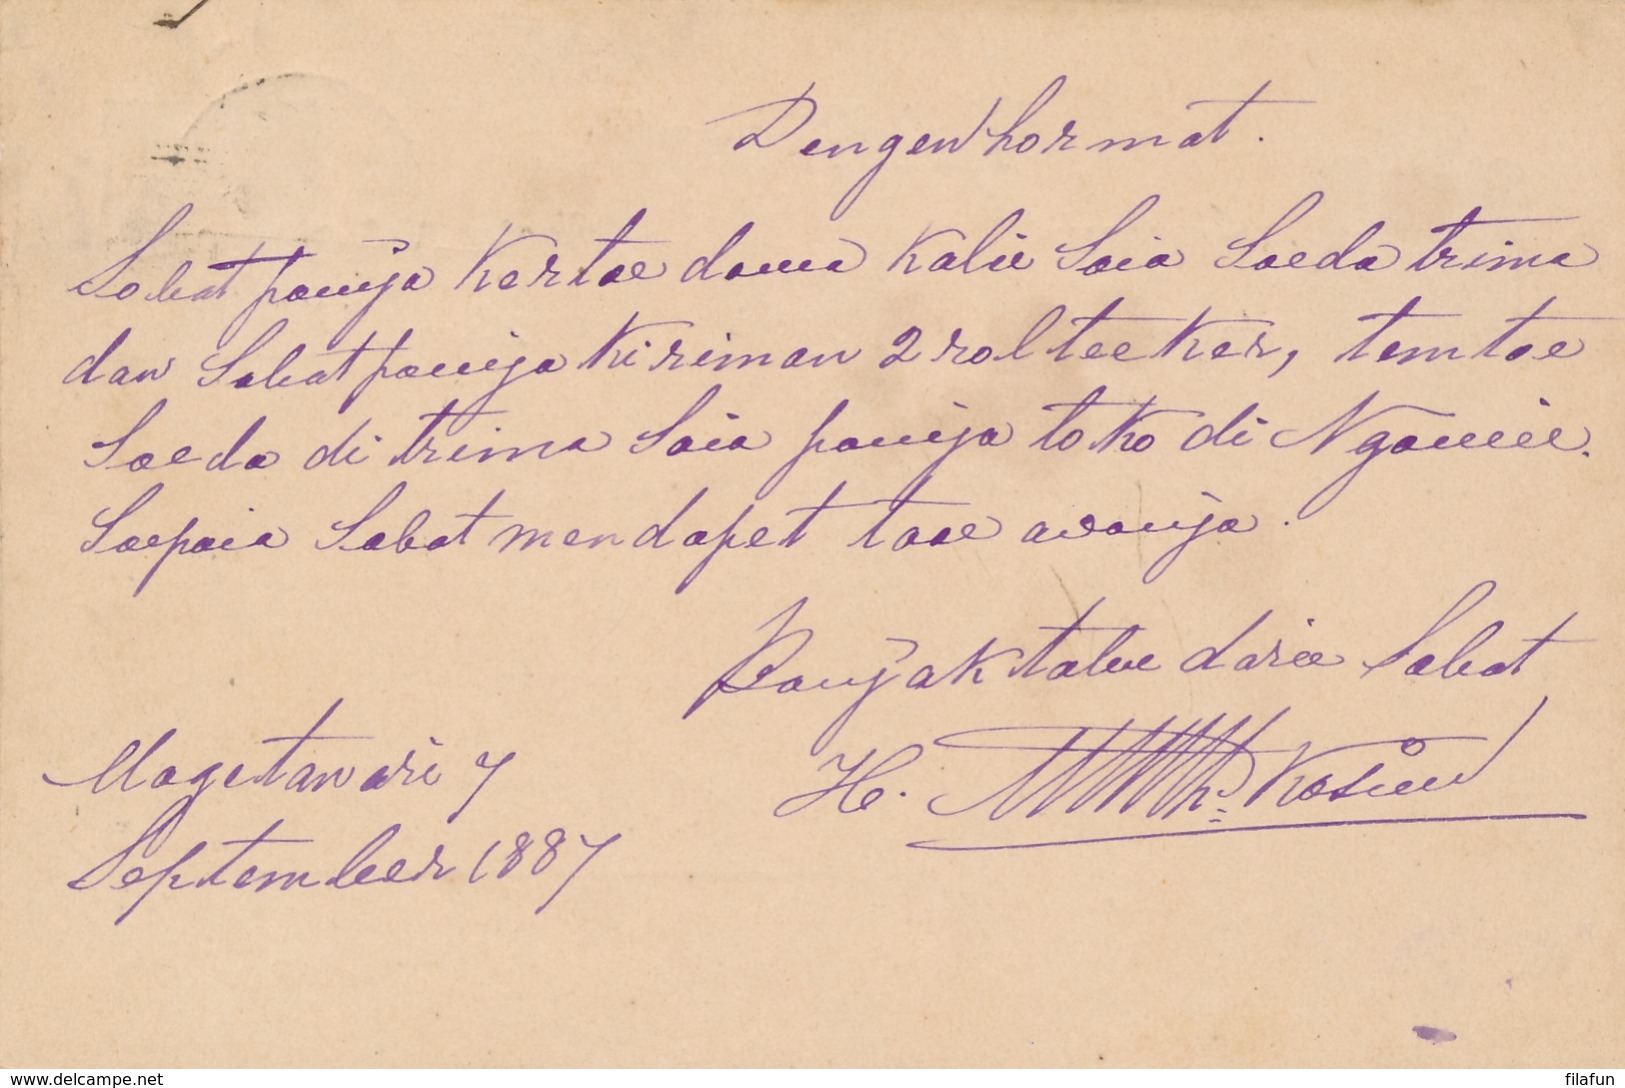 Dengen hormat.
Sobat poenja Kertoe doewa Kalie Saia Soeda trima
dan Sobat poenja Kiriman 2 rol teeKer, temtoe
Soeda di trima Saia poenja toKo di Ngawie.
Soepaia Sobat mendapet taoe adanja.
Banjak tabee darie Sobat
Magetan ari 7
H. Kasim
September 1887
www.delcampe.net
filafun